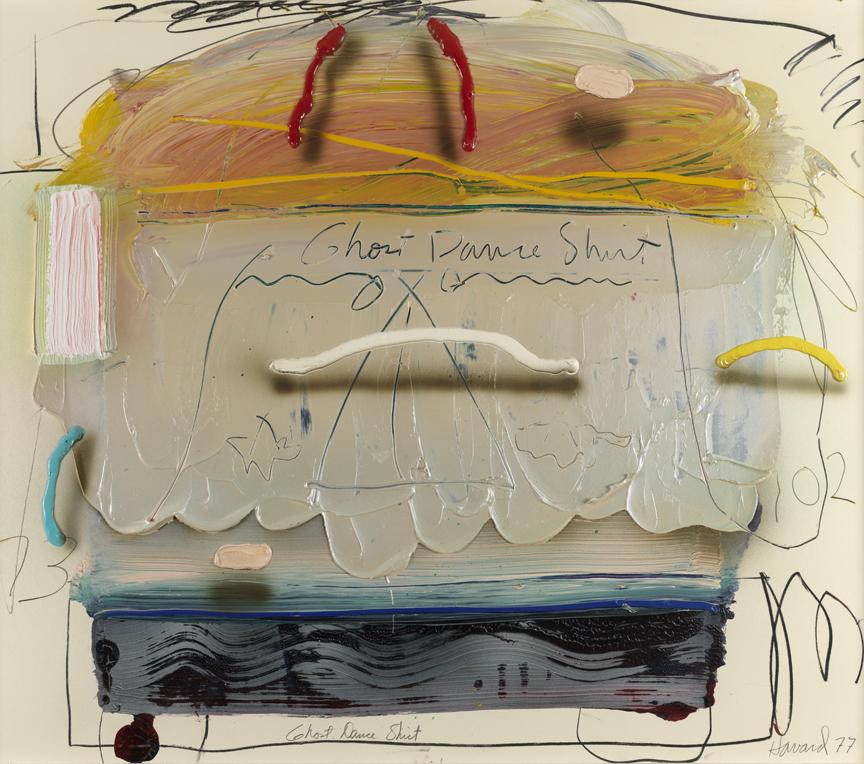 Ghost Dance Shirt
102
Ghost Dance Shirt
Havard 77